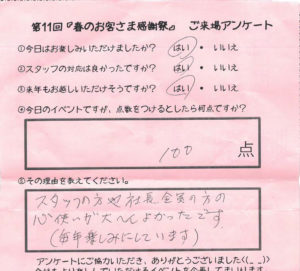 第11回『春のお客さま感謝祭』 ご来場アンケート
①今日はお楽しみいただけましたか？ はい ・ いいえ
②スタッフの対応は良かったですか？ はい ・ いいえ
③来年もお越しいただけそうですか？ はい ・ いいえ
④今日のイベントですが、点数をつけるとしたら何点ですか？
100 点
⑤その理由を教えてください。
スタッフの方や社長、全員の方の
心使いが大へんよかったです
(毎年楽しみにしています)
アンケートにご協力いただき、ありがとうございました<(_ _)>